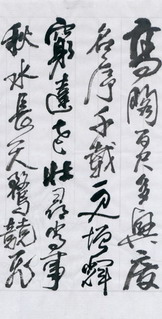 高閣百尺多興廢
名序千載更增輝
窮達老壯尋常事
秋水長天鶩競飛